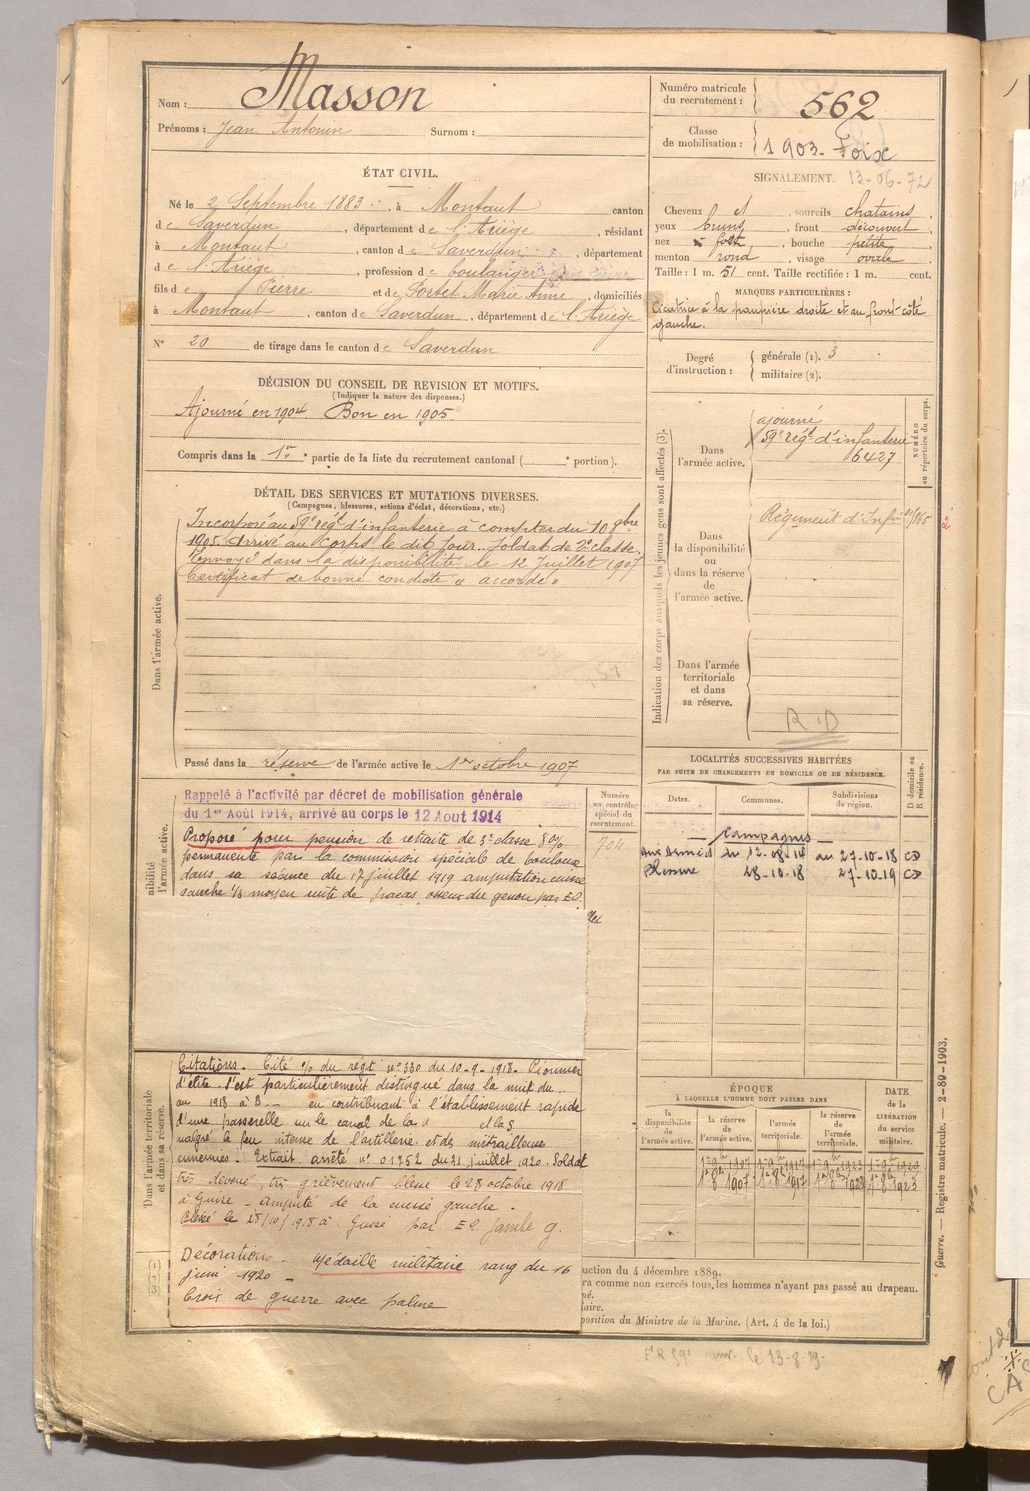 Nom : Masson
Prénoms : Jean Antonin Surnom :
Numéro matricule du recrutement : 562
Classe de mobilisation : 1903. Foix
ÉTAT CIVIL.
Né le 2 Septembre 1883, à Montaut canton
de Saverdun, département de l'Ariège, résidant
à Montaut, canton de Saverdun, département
de l'Ariège, profession de boulanger
fils de Pierre et de Fortet Marie Anne, domiciliés
à Montaut, canton de Saverdun, département de l'Ariège
N° 20 de tirage dans le canton de Saverdun
SIGNALEMENT. 13-06-72
Cheveux et, sourcils chatains,
yeux bruns, front découvert,
nez fort, bouche petite,
menton rond, visage ovale
Taille : 1 m. 51 cent. Taille rectifiée : 1 m. cent.
MARQUES PARTICULIÈRES :
Cicatrice à la paupière droite et au front côté
gauche.
Degré d'instruction : générale (1). 3
militaire (2).
DÉCISION DU CONSEIL DE REVISION ET MOTIFS.
(Indiquer la nature des dispenses.)
Ajourné en 1904. Bon en 1905.
Compris dans la 1re partie de la liste du recrutement cantonal ( e portion).
DÉTAIL DES SERVICES ET MUTATIONS DIVERSES.
(Campagnes, blessures, actions d'éclat, décorations, etc.)
Dans l'armée active.
Incorporé au 59e régt d'infanterie à compter du 10 8bre
1905. Arrivé au corps le dit jour. Soldat de 2e classe.
Envoyé dans la disponibilité le 12 Juillet 1907
Certificat de bonne conduite "accordé"
Passé dans la réserve de l'armée active le 1er octobre 1907
Indication des corps auxquels les jeunes gens sont affectés (3).
NUMÉRO au répertoire du corps.
Dans l'armée active.
ajourné
59e régt d'infanterie
6427
Dans la disponibilité ou dans la réserve de l'armée active.
Régiment d'Inf
Dans l'armée territoriale et dans sa réserve.
R D
LOCALITÉS SUCCESSIVES HABITÉES
PAR SUITE DE CHANGEMENTS DE DOMICILE OU DE RÉSIDENCE.
Dates. Communes. Subdivisions de région. D domicile ou R résidence.
Campagnes
du 12-08-14 au 27-10-18 CD
Blessure 28-10-18 27-10-19 CD
Numéro au contrôle spécial du recrutement.
704
nibilité
l'armée active.
Rappelé à l'activité par décret de mobilisation générale
du 1er Août 1914, arrivé au corps le 12 Aout 1914
Proposé pour pension de retraite de 3e classe 80%
permanente par la commission spéciale de toulouse
dans sa séance du 17 juillet 1919 amputation cuisse
gauche 1/3 moyen suite de fracas osseux du genou par EO.
Dans l'armée territoriale et dans sa réserve.
Citations. Cité % du régt n° 330 du 10-9-1918. Pionnier
d'élite. S'est particulièrement distingué dans la nuit du ..
au 1918 à B... en contribuant à l'établissement rapide
d'une passerelle sur le canal de la et la S
malgré le feu intense de l'artillerie et des mitrailleuses
ennemies. Extrait arrêté n° 01252 du 31 juillet 1920. Soldat
très dévoué, très grièvement blessé le 28 octobre 1918
à Guise. amputé de la cuisse gauche.
Blessé le 28/10/1918 à Guise par EO. Jambe g.
Décorations - Médaille militaire rang du 16
juin 1920 -
Croix de guerre avec palme
ÉPOQUE
À LAQUELLE L'HOMME DOIT PASSER DANS
DATE de la LIBÉRATION du service militaire.
la disponibilité de l'armée active. la réserve de l'armée active. l'armée territoriale. la réserve de l'armée territoriale.
1er 8bre 1907 1er 8bre 1917 1er 8bre 1923
uction du 4 décembre 1889.
ra comme non exercés tous les hommes n'ayant pas passé au drapeau.
né.
laire.
position du Ministre de la Marine. (Art. 4 de la loi.)
le 13-8-19.
Guerre. — Registre matricule. — 2-89-1903.